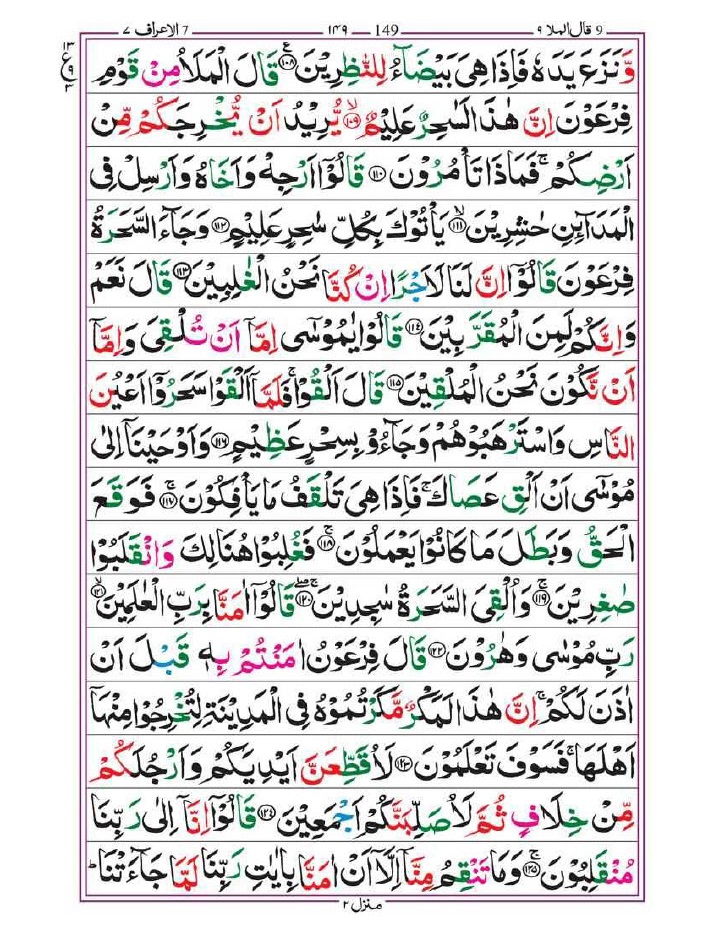 9 قال الملا ٩ — 149 — ١٤٩ — 7 الاعراف ٧
١٣ ع ٩ ٣
وَّنَزَعَ يَدَهٗ فَاِذَا هِىَ بَيْضَآءُ لِلنّٰظِرِيْنَ ﴿۱۰۸﴾ قَالَ الْمَلَاُ مِنْ قَوْمِ
فِرْعَوْنَ اِنَّ هٰذَا لَسٰحِرٌ عَلِيْمٌ ﴿۱۰۹﴾ يُّرِيْدُ اَنْ يُّخْرِجَكُمْ مِّنْ
اَرْضِكُمْ ۚ فَمَاذَا تَاْمُرُوْنَ ﴿۱۱۰﴾ قَالُوْۤا اَرْجِهْ وَاَخَاهُ وَاَرْسِلْ فِى
الْمَدَآئِنِ حٰشِرِيْنَ ﴿۱۱۱﴾ يَاْتُوْكَ بِكُلِّ سٰحِرٍ عَلِيْمٍ ﴿۱۱۲﴾ وَجَآءَ السَّحَرَةُ
فِرْعَوْنَ قَالُوْۤا اِنَّ لَنَا لَاَجْرًا اِنْ كُنَّا نَحْنُ الْغٰلِبِيْنَ ﴿۱۱۳﴾ قَالَ نَعَمْ
وَاِنَّكُمْ لَمِنَ الْمُقَرَّبِيْنَ ﴿۱۱۴﴾ قَالُوْا يٰمُوْسٰٓى اِمَّاۤ اَنْ تُلْقِىَ وَاِمَّاۤ
اَنْ نَّكُوْنَ نَحْنُ الْمُلْقِيْنَ ﴿۱۱۵﴾ قَالَ اَلْقُوْا ۚ فَلَمَّاۤ اَلْقَوْا سَحَرُوْۤا اَعْيُنَ
النَّاسِ وَاسْتَرْهَبُوْهُمْ وَجَآءُوْ بِسِحْرٍ عَظِيْمٍ ﴿۱۱۶﴾ وَاَوْحَيْنَاۤ اِلٰى
مُوْسٰٓى اَنْ اَلْقِ عَصَاكَ ۚ فَاِذَا هِىَ تَلْقَفُ مَا يَاْفِكُوْنَ ﴿۱۱۷﴾ فَوَقَعَ
الْحَقُّ وَبَطَلَ مَا كَانُوْا يَعْمَلُوْنَ ﴿۱۱۸﴾ فَغُلِبُوْا هُنَالِكَ وَانْقَلَبُوْا
صٰغِرِيْنَ ﴿۱۱۹﴾ وَاُلْقِىَ السَّحَرَةُ سٰجِدِيْنَ ﴿۱۲۰﴾ قَالُوْۤا اٰمَنَّا بِرَبِّ الْعٰلَمِيْنَ ﴿۱۲۱﴾
رَبِّ مُوْسٰى وَهٰرُوْنَ ﴿۱۲۲﴾ قَالَ فِرْعَوْنُ اٰمَنْتُمْ بِهٖ قَبْلَ اَنْ
اٰذَنَ لَكُمْ ۚ اِنَّ هٰذَا لَمَكْرٌ مَّكَرْتُمُوْهُ فِى الْمَدِيْنَةِ لِتُخْرِجُوْا مِنْهَاۤ
اَهْلَهَا ۚ فَسَوْفَ تَعْلَمُوْنَ ﴿۱۲۳﴾ لَاُقَطِّعَنَّ اَيْدِيَكُمْ وَاَرْجُلَكُمْ
مِّنْ خِلَافٍ ثُمَّ لَاُصَلِّبَنَّكُمْ اَجْمَعِيْنَ ﴿۱۲۴﴾ قَالُوْۤا اِنَّاۤ اِلٰى رَبِّنَا
مُنْقَلِبُوْنَ ﴿۱۲۵﴾ وَمَا تَنْقِمُ مِنَّاۤ اِلَّاۤ اَنْ اٰمَنَّا بِاٰيٰتِ رَبِّنَا لَمَّا جَآءَتْنَا ؕ
منزل ٢